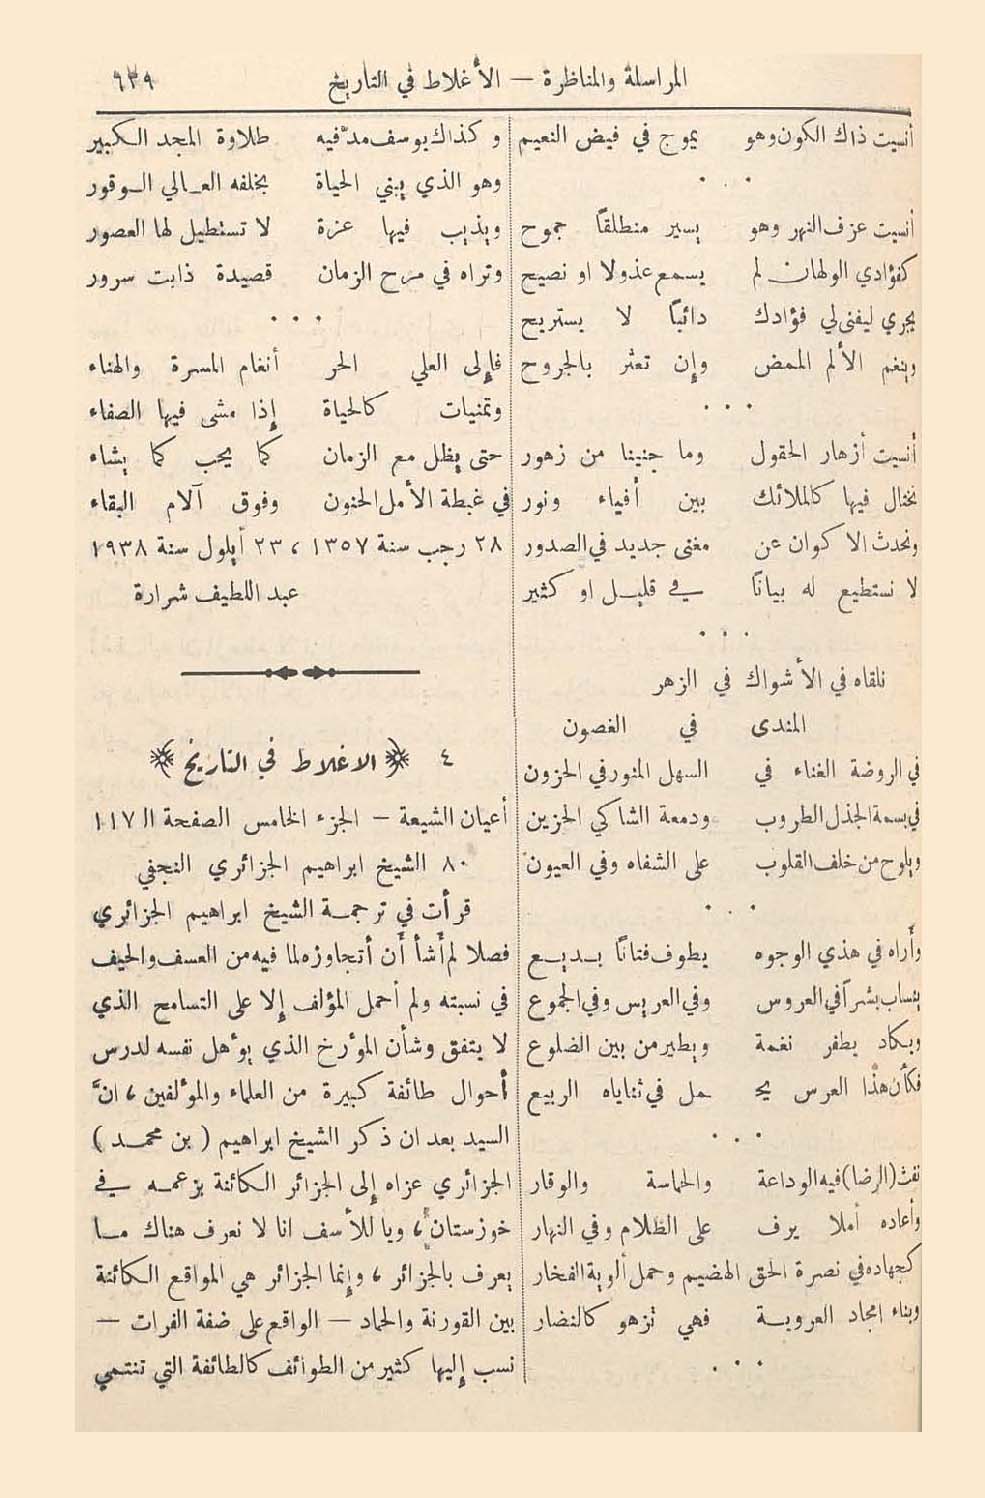 المراسلة والمناظرة — الأغلاط في التاريخ ٩٣٩
أنسيت ذاك الكون وهو يموج في فيض النعيم
. . .
أنسيت عزف النهر وهو يسير منطلقاً جموح
كفؤادي الولهان لم يسمع عذولا او نصيح
يجري ليفنى لي فؤادك دائباً لا يستريح
وينغم الألم الممض وإن تعثر بالجروح
. . .
أنسيت أزهار الحقول وما جنينا من زهور
نختال فيها كالملائك بين أفياء ونور
ونحدث الاكوان عن مغنى جديد في الصدور
لا نستطيع له بياناً في قليل او كثير
. . .
نلقاه في الأشواك في الزهر
المندى في الغصون
في الروضة الغناء في السهل المنور في الحزون
في بسمة الجذل الطروب ودمعة الشاكي الحزين
ويلوح من خلف القلوب على الشفاه وفي العيون
. . .
وأراه في هذي الوجوه يطوف فتاناً بديع
ينساب بشراً في العروس وفي العريس وفي الجموع
ويكاد يطفر نغمة ويطير من بين الضلوع
فكأن هذا العرس يحمل في ثناياه الربيع
. . .
نفث (الرضا) فيه الوداعة والحماسة والوقار
وأعاده أملا يرف على الظلام وفي النهار
كجهاده في نصرة الحق الهضيم وحمل ألوية الفخار
وبناء امجاد العروبة فهي تزهو كالنضار
. . .
وكذاك يوسف مدّ فيه طلاوة المجد الكبير
وهو الذي يبني الحياة بخلفه العالي الوقور
ويذيب فيها عزة لا تستطيل لها العصور
وتراه في مرح الزمان قصيدة ذابت سرور
. . .
فإلى العلي الحر أنغام المسرة والهناء
وتمنيات كالحياة إذا مشى فيها الصفاء
حتى يظل مع الزمان كما يحب كما يشاء
في غبطة الأمل الحنون وفوق آلام البقاء
٢٨ رجب سنة ١٣٥٧ ، ٢٣ أيلول سنة ١٩٣٨
عبد اللطيف شرارة
٤ ﴿ الاغلاط في التاريخ ﴾
أعيان الشيعة — الجزء الخامس الصفحة الـ ١١٧
٨٠ الشيخ ابراهيم الجزائري النجفي
قرأت في ترجمة الشيخ ابراهيم الجزائري
فصلا لم أشأ أن أتجاوزه لما فيه من العسف والحيف
في نسبته ولم أحمل المؤلف إلا على التسامح الذي
لا يتفق وشأن المؤرخ الذي يؤهل نفسه لدرس
أحوال طائفة كبيرة من العلماء والمؤلفين ، انّ
السيد بعد ان ذكر الشيخ ابراهيم ( بن محمد )
الجزائري عزاه إلى الجزائر الكائنة بزعمه في
خوزستان ، ويا للأسف انا لا نعرف هناك ما
يعرف بالجزائر ، وإنما الجزائر هي المواقع الكائنة
بين القورنة والحماد — الواقع على ضفة الفرات —
نسب إليها كثير من الطوائف كالطائفة التي تنتمي